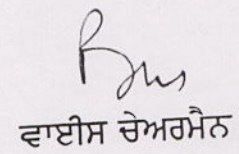 ਵਾਈਸ ਚੇਅਰਮੈਨ